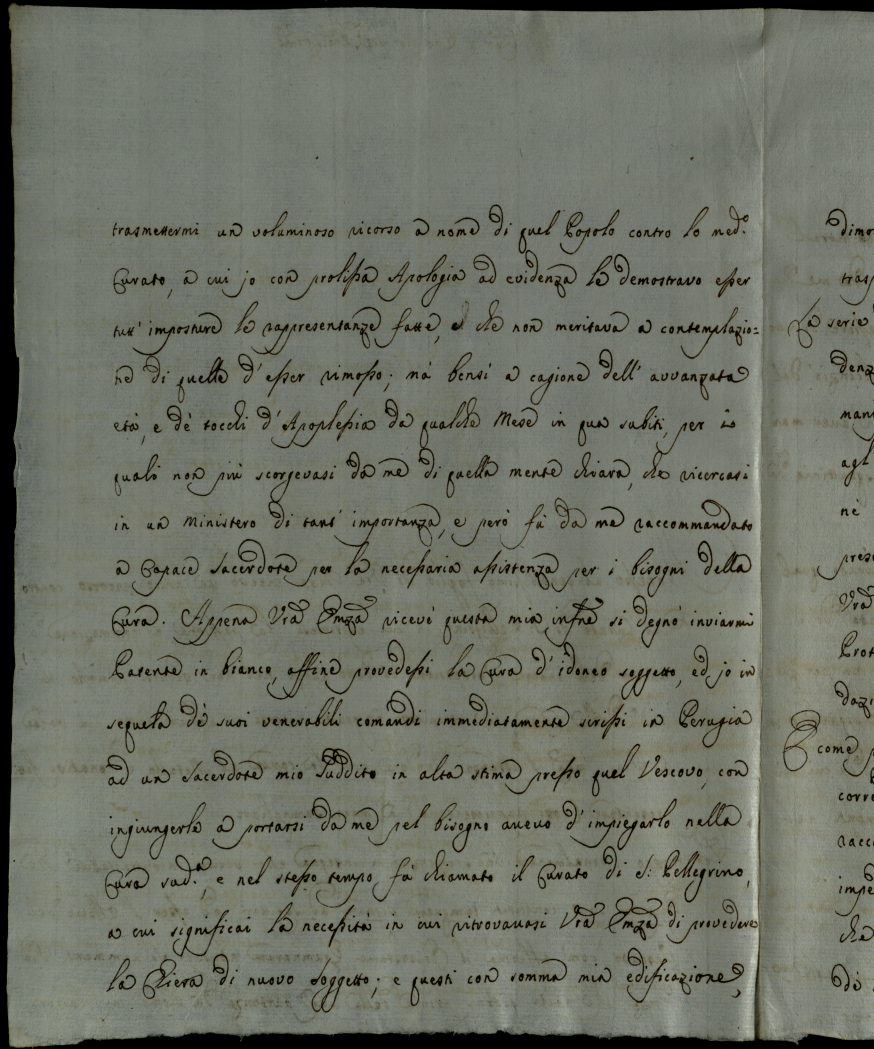 trasmettermi un voluminoso ricorso à nome di quel Popolo contro lo med.º
Curato, à cui jo con prolissa Apologia ad evidenza le demostravo esser
tutt' imposture le rappresentanze fatte, e che non meritava a contemplazio=
ne di quelle d'esser rimosso; mà bensì a cagione dell' avvanzata
età, e dè tocchi d'Apoplessia da qualche Mese in qua subiti, per
quali non più scorgevasi da me di quella mente chiara, che ricercasi
in un Ministero di tant' importanza, e però fù da me raccommandato
a Capace Sacerdote per la necessaria assistenza per i bisogni della
Cura. Appena Vrã Emza ricevè questa mia infne si degnò inviarmi
Patente in bianco, affine provedessi la Cura d'idoneo soggetto, ed jo in
sequela dè suoi venerabili comandi immediatamente scrissi in Perugia
ad un Sacerdote mio Suddito in alta stima presso quel Vescovo, con
ingiungerle a portarsi da me pel bisogno avevo d'impiegarlo nella
Cura sud.ª, e nel stesso tempo fù chiamato il Curato di S: Pellegrino,
a cui significai la necessità in cui ritrovavasi Vrã Emza di provedere
la Chiesa di nuovo Soggetto; e questi con somma mia edificazione,
dimo
trasp
La serie
denz
man
agl
nè
pres
Vrã
Prot
daz
E come
corre
racc
impe
cha
dè